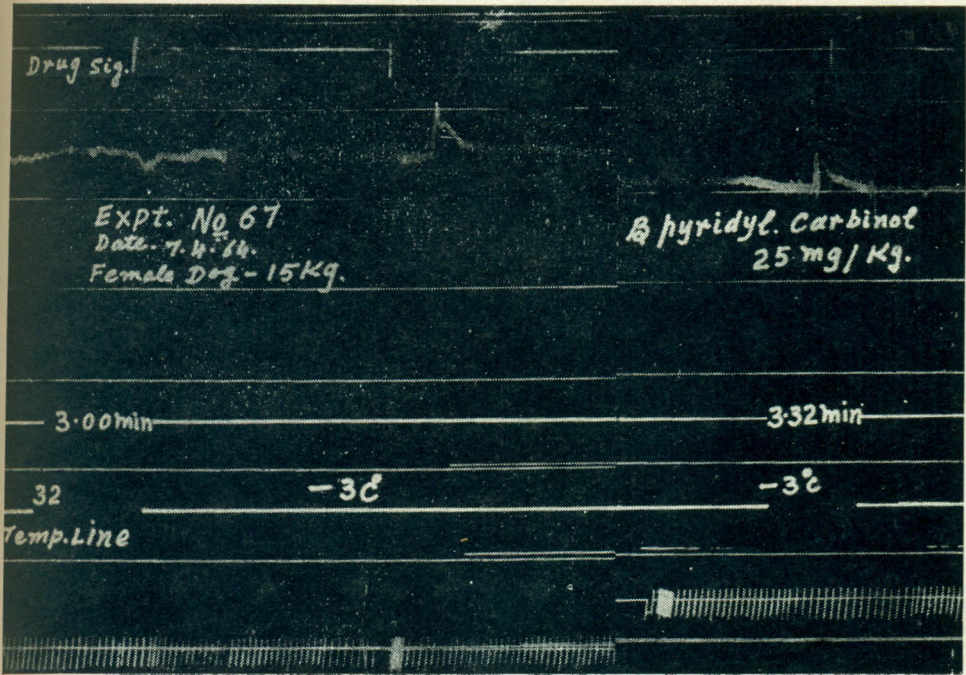 Drug Sig.
Expt. No 67
Date. 7.4.'64.
Female Dog - 15 Kg.
B pyridyl. Carbinol
25 mg/Kg.
3.00 min
3.32 min
32
-3c
-3°c
Temp. Line